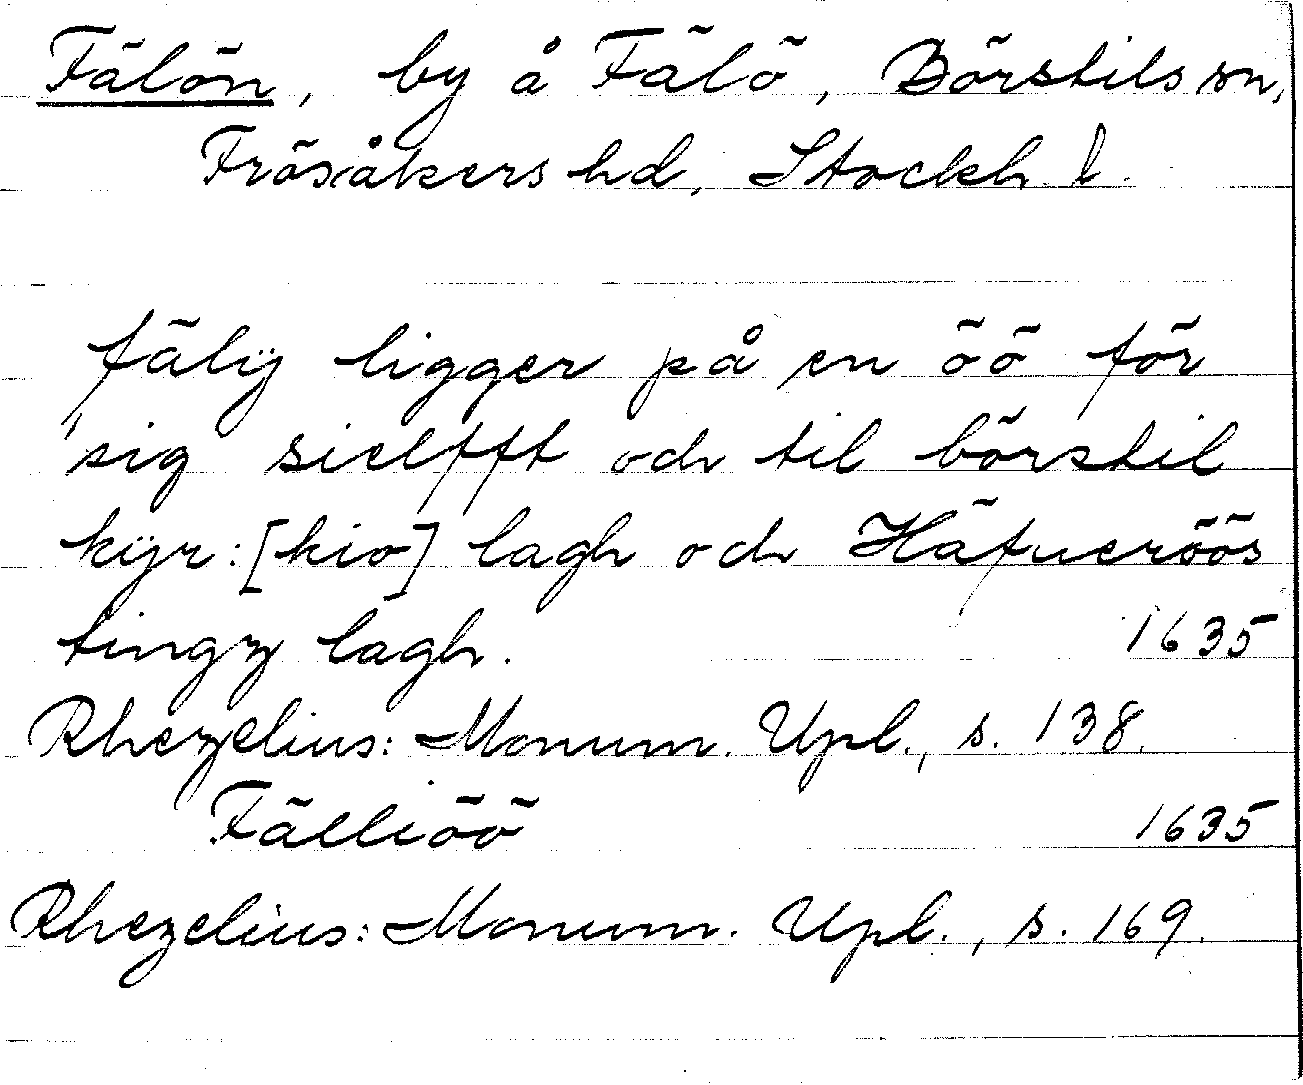 Fälön, by å Fälö, Börstils sn,
Frösåkers hd, Stockh l.
fälÿ ligger på en öö för
sig sielfft och til börstil
kÿr: [kio] lagh och Häfueröös
tingz lagh. 1635
Rhezelius: Monum. Upl., s. 138.
Fälliöö 1635
Rhezelius: Monum. Upl., s. 169.